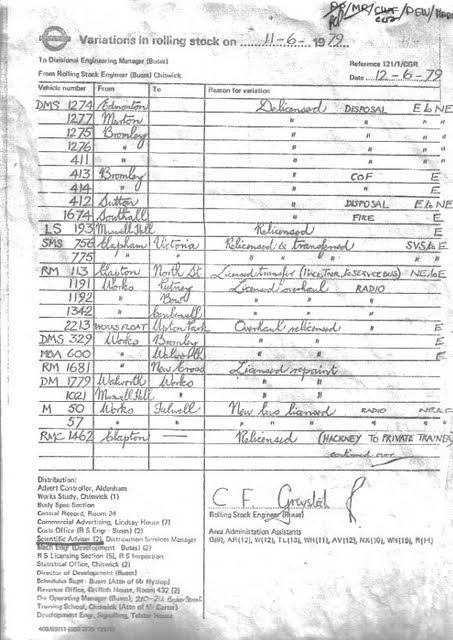 PP/MR/CWF/DSW/
Variations in rolling stock on 11-6- 1979
To Divisional Engineering Manager (Buses)
From Rolling Stock Engineer (Buses) Chiswick
Reference 121/1/CGR
Date 12-6-79
Vehicle number From To Reason for variation
DMS 1274 Edmonton Delicensed DISPOSAL E to NE
1277 Merton " " " "
1275 Bromley " " " "
1276 " " " " "
411 " " " " "
413 Bromley " COF E
414 " " " E
412 Sutton " DISPOSAL E to NE
1674 Southall " FIRE E
LS 193 Muswell Hill Relicensed E
SMS 756 Clapham Victoria Relicensed & transferred SVS to E
775 " " " " "
RM 113 Clapton North St Licensed transfer (HACK.TNR. to SERVICE BUS) NE to E
1191 Works Putney Licensed overhaul RADIO
1192 " Bow " " "
1342 " Camberwell " " "
2213 WORKS FLOAT Upton Park Overhaul relicensed " E
DMS 329 Works Bromley " " E
MBA 600 " Walworth " " E
RM 1681 " New Cross Licensed repaint
DM 1779 Walworth Works " "
1021 Muswell Hill " " "
M 50 Works Fulwell New bus licensed RADIO NE to E
57 " " " " " "
RMC 1462 Clapton — Relicensed (HACKNEY TO PRIVATE TRAINER)
continued over
Distribution:
Advert Controller, Aldenham
Works Study, Chiswick (1)
Body Spec Section
Central Record, Room 24
Commercial Advertising, Lindsay House (7)
Costs Office (R S Engr - Buses) (2)
Scientific Adviser (2), Distribution Services Manager
Mech Engr (Development Buses) (2)
R S Licensing Section (5), R S Inspection
Statistical Office, Chiswick (2)
Director of Development (Buses)
Schedules Supt - Buses (Attn of Mr Hyslop)
Revenue Office, Griffith House, Room 432 (2)
Div Operating Manager (Buses), 210-212 Baker Street
Training School, Chiswick (Attn of Mr Carter)
Development Engr, Signalling, Telstar House
C F
Rolling Stock Engineer (Buses)
Area Administration Assistants
Q(8), AR(12), W(12), TL(13), WH(11), AV(12), NX(10), WN(15), R(14)